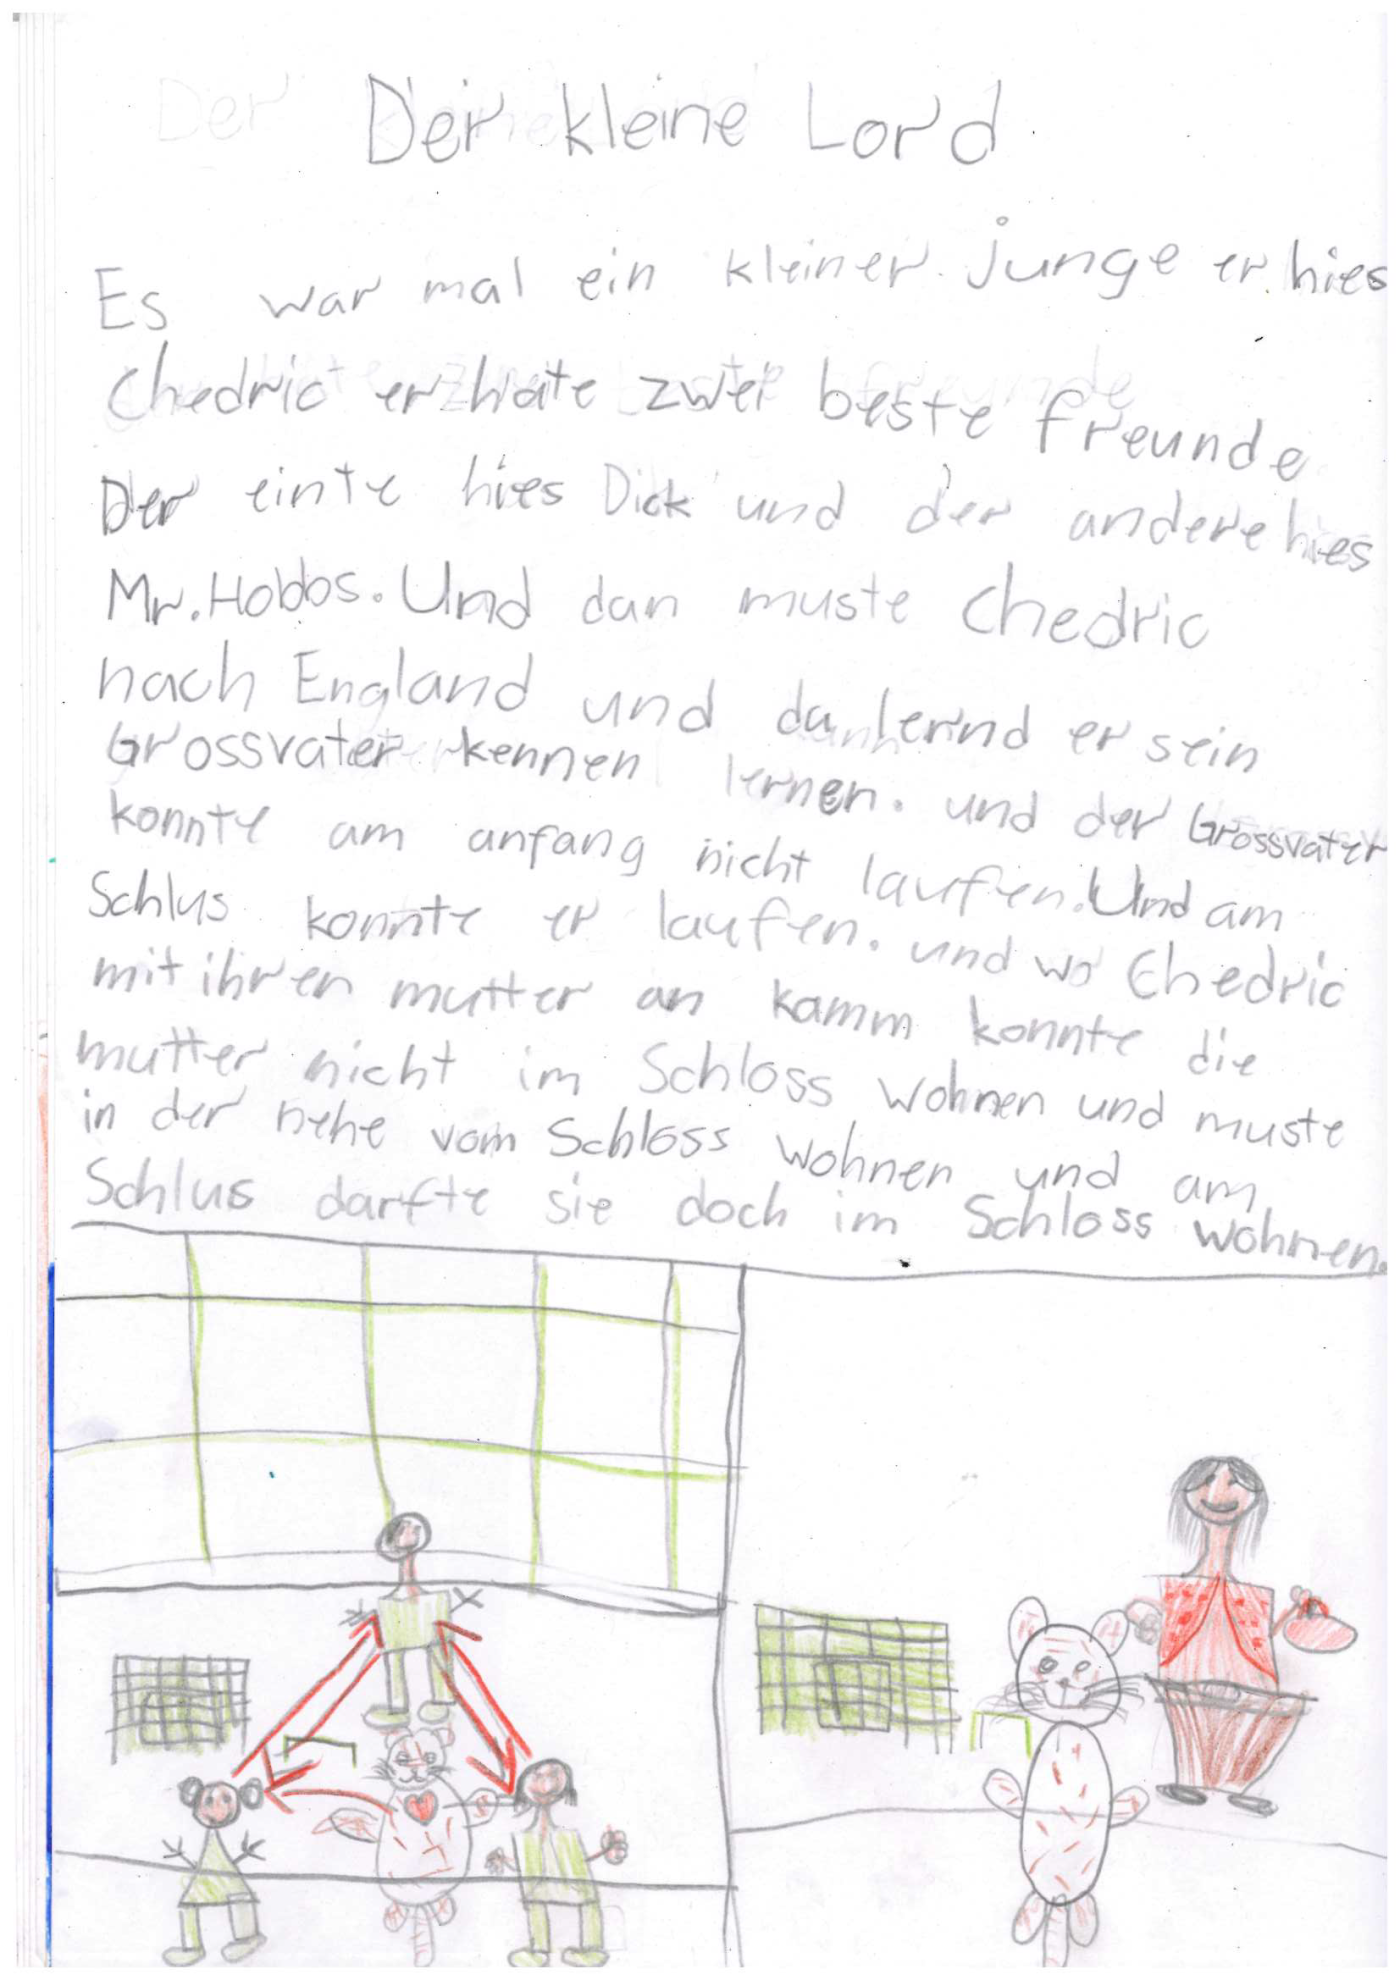 Der kleine Lord
Es war mal ein kleiner junge er hies
Chedric er hate zwei beste freunde
Der einte hies Dick und der andere hies
Mr. Hobbs. Und dan muste Chedric
nach England und dan lernd er sein
Grossvater kennen lernen. und der Grossvater
konnte am anfang nicht laufen. Und am
Schlus konnte er laufen. und wo Chedric
mit ihren mutter an kamm konnte die
mutter nicht im Schloss wohnen und muste
in der nehe vom Schloss wohnen und am
Schlus darfte sie doch im Schloss wohnen.